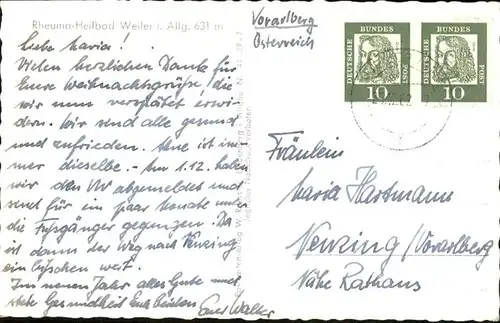 Rheuma-Heilbad Weiler i. Allg. 631 m
Liebe Maria!
Vielen herzlichen Dank für
Eure Weihnachtsgrüße, die
wir nun verspätet erwi-
dern. Wir sind alle gesund
und zufrieden. Anne ist im-
mer dieselbe. - Am 1.12. haben
wir den VW abgemeldet und
sind für ein paar Monate unter
die Fußgänger gegangen. Da
ist dann der Weg nach Nenzing
ein bißchen weit.
Im neuen Jahr alles Gute und
stete Gesundheit Euch beiden
Euer Walter
Vorarlberg
Österreich
DEUTSCHE BUNDES POST
10
DEUTSCHE BUNDES POST
10
Fräulein
Maria Hartmann
Nenzing (Vorarlberg
Nähe Rathaus